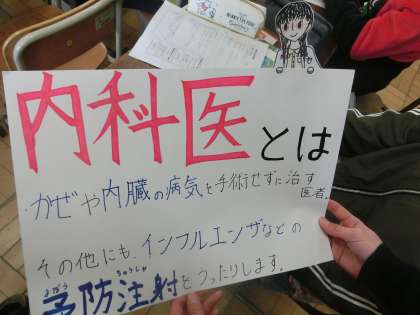 内科医とは
・かぜや内臓の病気を手術せずに治す
医者。
その他にも、インフルエンザなどの
よぼう ちゅうしゃ
予防注射をうったりします。